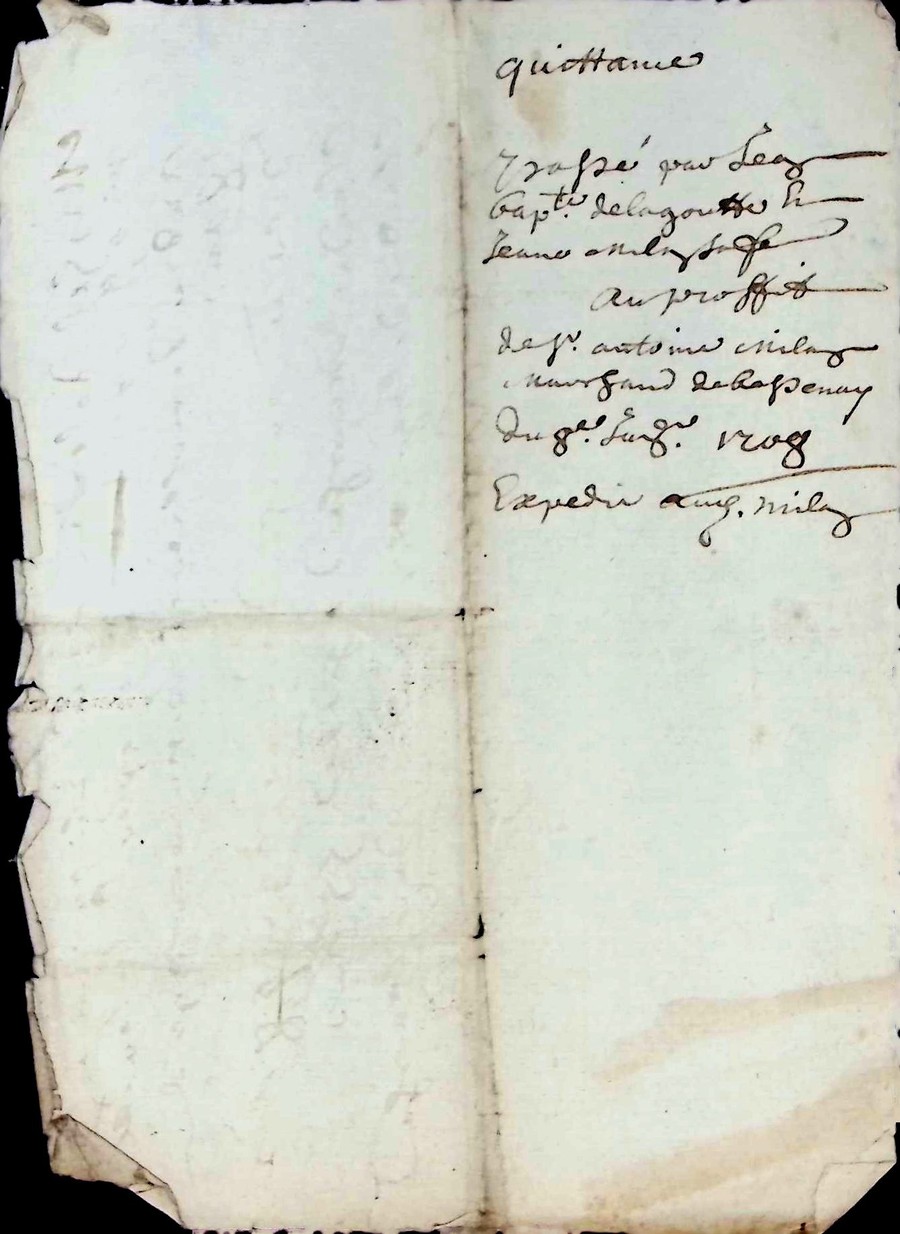 quittance
passé par Jean
bapte. delagoutte Et
Jeane Milan sa fe
Au proffit
de sr. antoine Milan
Marchand de
du 8e. Juin. 1708
Expedie Milan